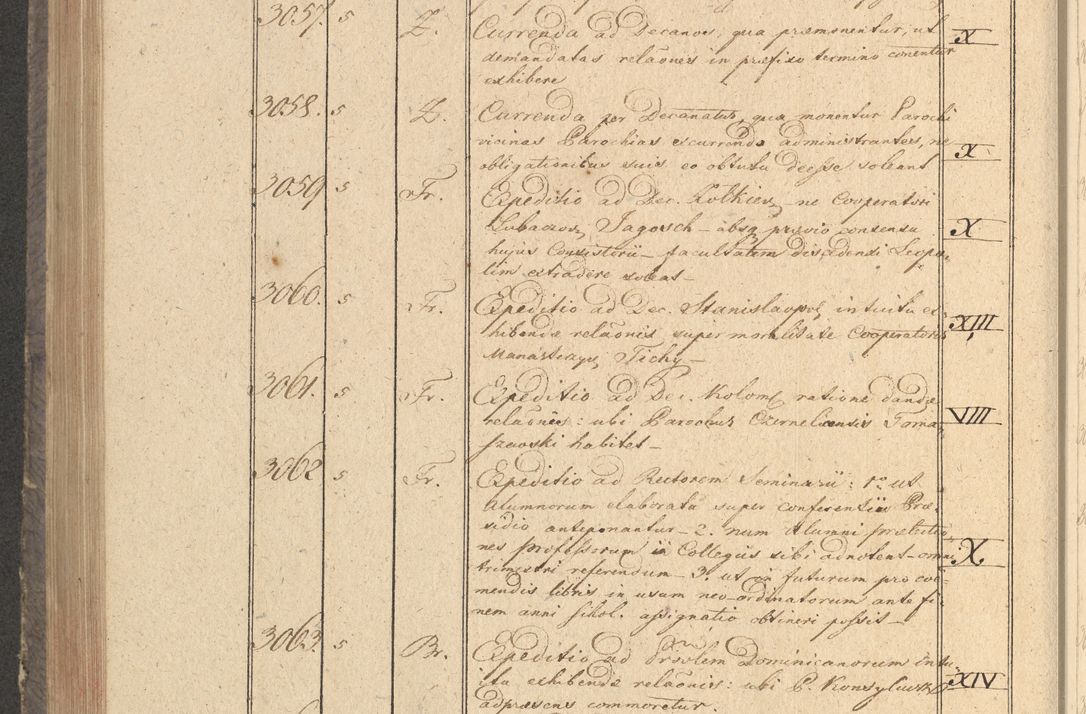 3057. 5 Z. Currenda ad Decanos, qua præmonentur, ut X
demandatas relaōnes in præfixo termino conentur
exhibere
3058. 5 Z. Currenda per Decanatus, qua monentur Parochi
vicinas Parochias excurrendo administrantes, ne X
obligationibus suis eo obtutu deesse soleant
3059 5 Fr. Expeditio ad Dec. Zołkiev, ne Cooperatori
Lubaczov, Jagorsch absq prævio consensu X
hujus Consistorii facultatem discedendi Leopo-
lim extradere soleat
3060. 5 Fr. Expeditio ad Dec. Stanislaopol, intuitu ex-
hibendæ relaōnis super mortalitate Cooperatoris XIII
Manasteazys, Tichy
3061. 5 Fr. Expeditio ad Dec. Kolom, ratione dandæ
relaōnis: ubi Parochus Czernelicensis Toma- VIII
szewski habitet
3062 5 Fr. Expeditio ad Rectorem Seminarii: 1mo ut
Alumnorum elaborata super conferentiis Præ-
sidio anteponantur 2. num Alumni prælectio-
nes professorum in Collegiis sibi adnotent omni X
trimestri referendum 3. ut in futurum pro coë-
mendis libris in usum neo-ordinatorum ante fi-
nem anni schol. assignatio obtineri possit
3063. 5 Br. Expeditio ad Prsulem Dominicanorum intu-
itu exhibendæ relaōnis: ubi P. XIV
adpræsens commoretur.